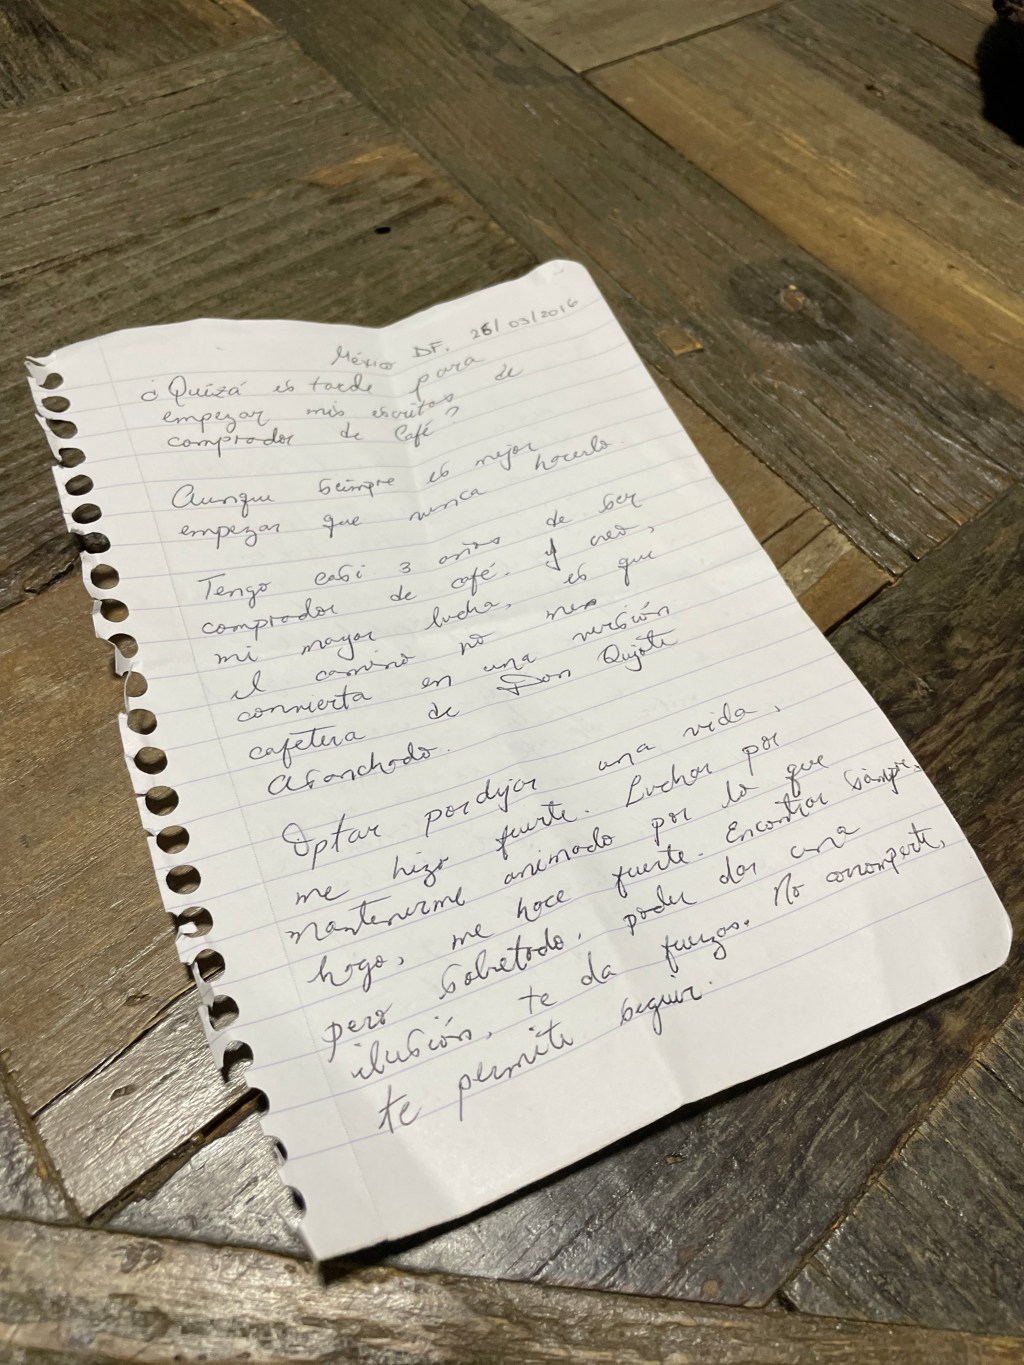 México DF. 26/03/2016
¿Quizá es tarde para
empezar mis escritos de
comprador de Café?
Aunque siempre es mejor
empezar que nunca hacerlo.
Tengo casi 3 años de ser
comprador de café. Y creo,
mi mayor lucha, es que
el camino no me
convierta en una versión
cafetera de Don Quijote
Optar por dejar una vida,
me hizo fuerte. Luchar por
mantenerme animado por lo que
hago, me hace fuerte. Encontrar siempre,
pero sobretodo, poder dar una
ilusión, te da fuerzas. No corromperte,
te permite seguir.